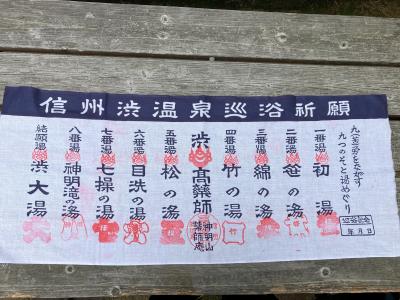 信州渋温泉巡浴祈願
九(苦)労をながす
九つのそと湯めぐり
巡浴記念
年 月 日
一番湯 初湯
二番湯 笹の湯
三番湯 綿の湯
四番湯 竹の湯
渋 高薬師 神明山 薬師庵
五番湯 松の湯
六番湯 目洗の湯
七番湯 七操の湯
八番湯 神明滝の湯
結願湯 渋大湯
竹
松